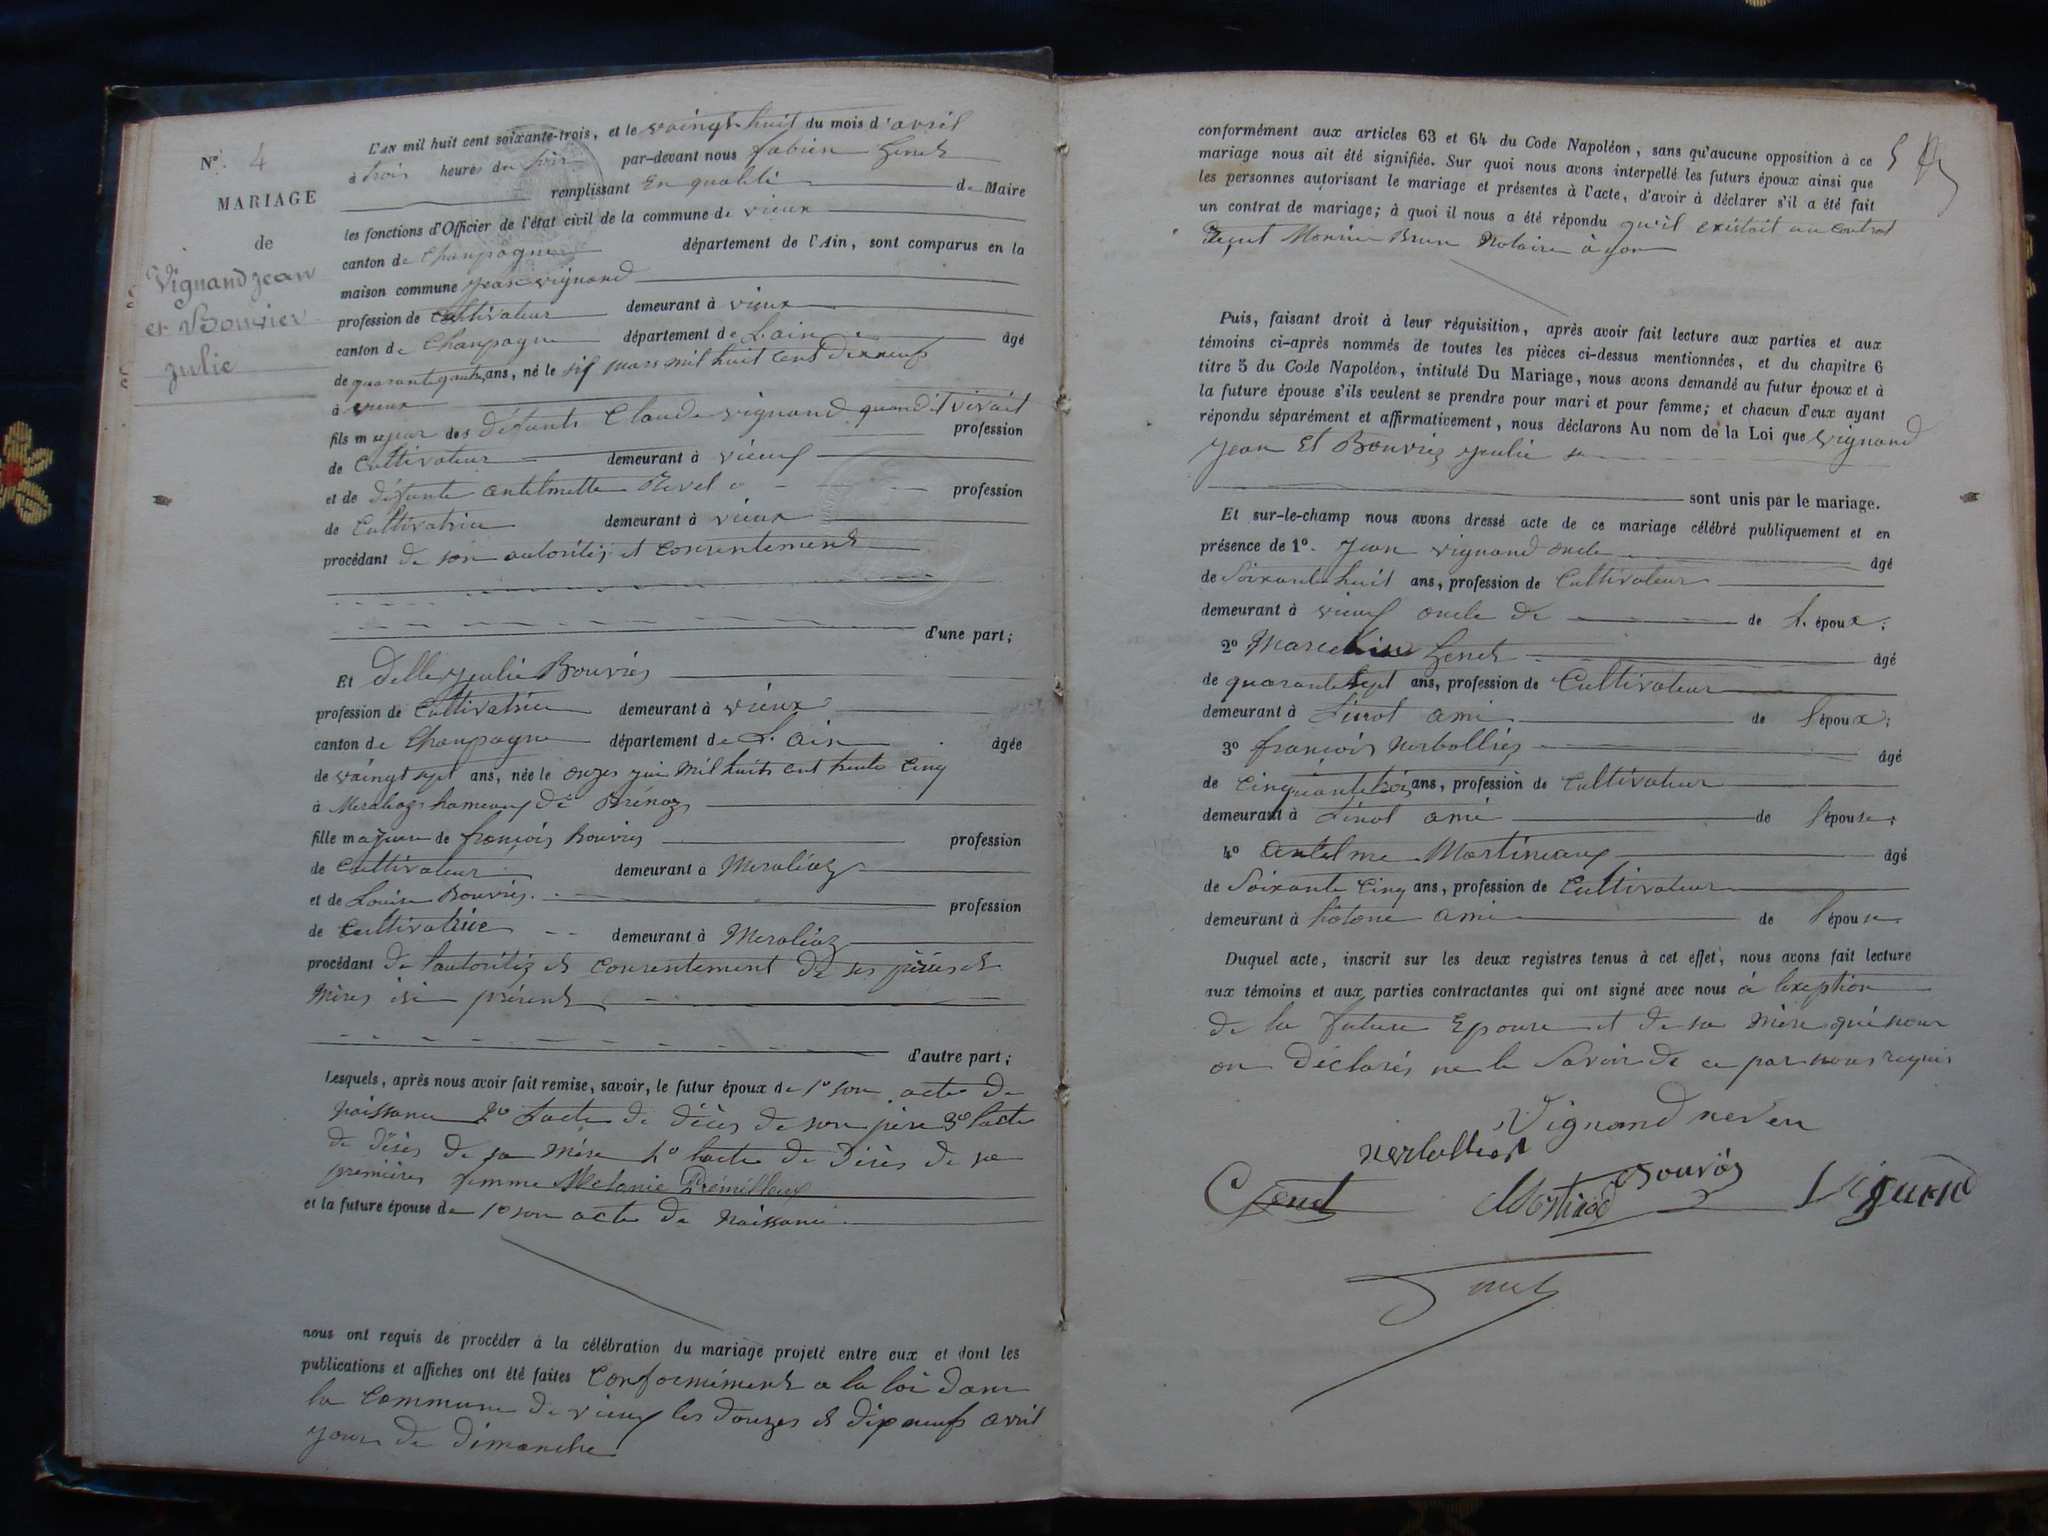 N° 4
MARIAGE
de
Vignand Jean
et Bouvier
Julie
L'AN mil huit cent soixante-trois, et le vaingt huit du mois d'avril
à trois heures du soir par-devant nous fabien Genet
remplissant En qualité de Maire
les fonctions d'Officier de l'état civil de la commune de vieux
canton de Champagne département de l'Ain, sont comparus en la
maison commune Jean vignand
profession de Cultivateur demeurant à vieux
canton de Champagne département de L'ain âgé
de quarante quatre ans, né le six mars mil huit cent dixneuf
à vieux
fils majeur des défunts Claude vignand quand it vivait
profession
de Cultivateur demeurant à vieux
et de défunte antelmette Revel profession
de Cultivatrice demeurant à vieux
procédant de son autorités et consentement
d'une part;
Et Delle Jeulie Bouvier
profession de Cultivatrice demeurant à vieux
canton de Champagne département de L'ain âgée
de vaingt sept ans, née le onzes juin mil huits cent trente cinq
à Meraleaz hameaux de Brénaz
fille majeure de françois Bouvier profession
de Cultivateur demeurant à Meraléaz
et de Louise Bouvier profession
de Cultivatrice demeurant à Meraléaz
procédant de l'autoritéz et consentement de ses pères et
Mères isi présent
d'autre part;
Lesquels, après nous avoir fait remise, savoir, le futur époux de 1° son acte de
Naissance 2° L'acte de décès de son père 3° l'acte
de décès de sa mère 4° l'acte de décès de sa
premières femme Melanie
et la future épouse de 1° son acte de Naissance
nous ont requis de procéder à la célébration du mariage projeté entre eux et dont les
publications et affiches ont été faites Conformément a la loi dans
la Commune de vieux les douzes et dixneufs avril
jour de dimanche
conformément aux articles 63 et 64 du Code Napoléon, sans qu'aucune opposition à ce
mariage nous ait été signifiée. Sur quoi nous avons interpellé les futurs époux ainsi que
les personnes autorisant le mariage et présentes à l'acte, d'avoir à déclarer s'il a été fait
un contrat de mariage; à quoi il nous a été répondu qu'il existait un contrat
Reçut Monsieur Brun Notaire à
Puis, faisant droit à leur réquisition, après avoir fait lecture aux parties et aux
témoins ci-après nommés de toutes les pièces ci-dessus mentionnées, et du chapitre 6
titre 5 du Code Napoléon, intitulé Du Mariage, nous avons demandé au futur époux et à
la future épouse s'ils veulent se prendre pour mari et pour femme; et chacun d'eux ayant
répondu séparément et affirmativement, nous déclarons Au nom de la Loi que vignand
Jean Et Bouvier Jeulie
sont unis par le mariage.
Et sur-le-champ nous avons dressé acte de ce mariage célébré publiquement et en
présence de 1° Jean vignand oncle âgé
de Soixante huit ans, profession de Cultivateur
demeurant à vieux oncle de de L. époux;
2° Marcelin Genet âgé
de quarante sept ans, profession de Cultivateur
demeurant à Linod ami de l'époux;
3° françois Nerbollier âgé
de Cinquante trois ans, profession de Cultivateur
demeurant à Linod ami de l'épouse;
4° antelme Martinaux âgé
de Soixante Cinq ans, profession de Cultivateur
demeurant à ami de l'épouse
Duquel acte, inscrit sur les deux registres tenus à cet effet, nous avons fait lecture
aux témoins et aux parties contractantes qui ont signé avec nous à lexeption
de la future Epouse et de sa mère qui nous
on déclarés ne le Savoir de ce par nous requis
Vignand neveu
Nerbollier
Bouvier
Genet Martinod Vignand
Genet